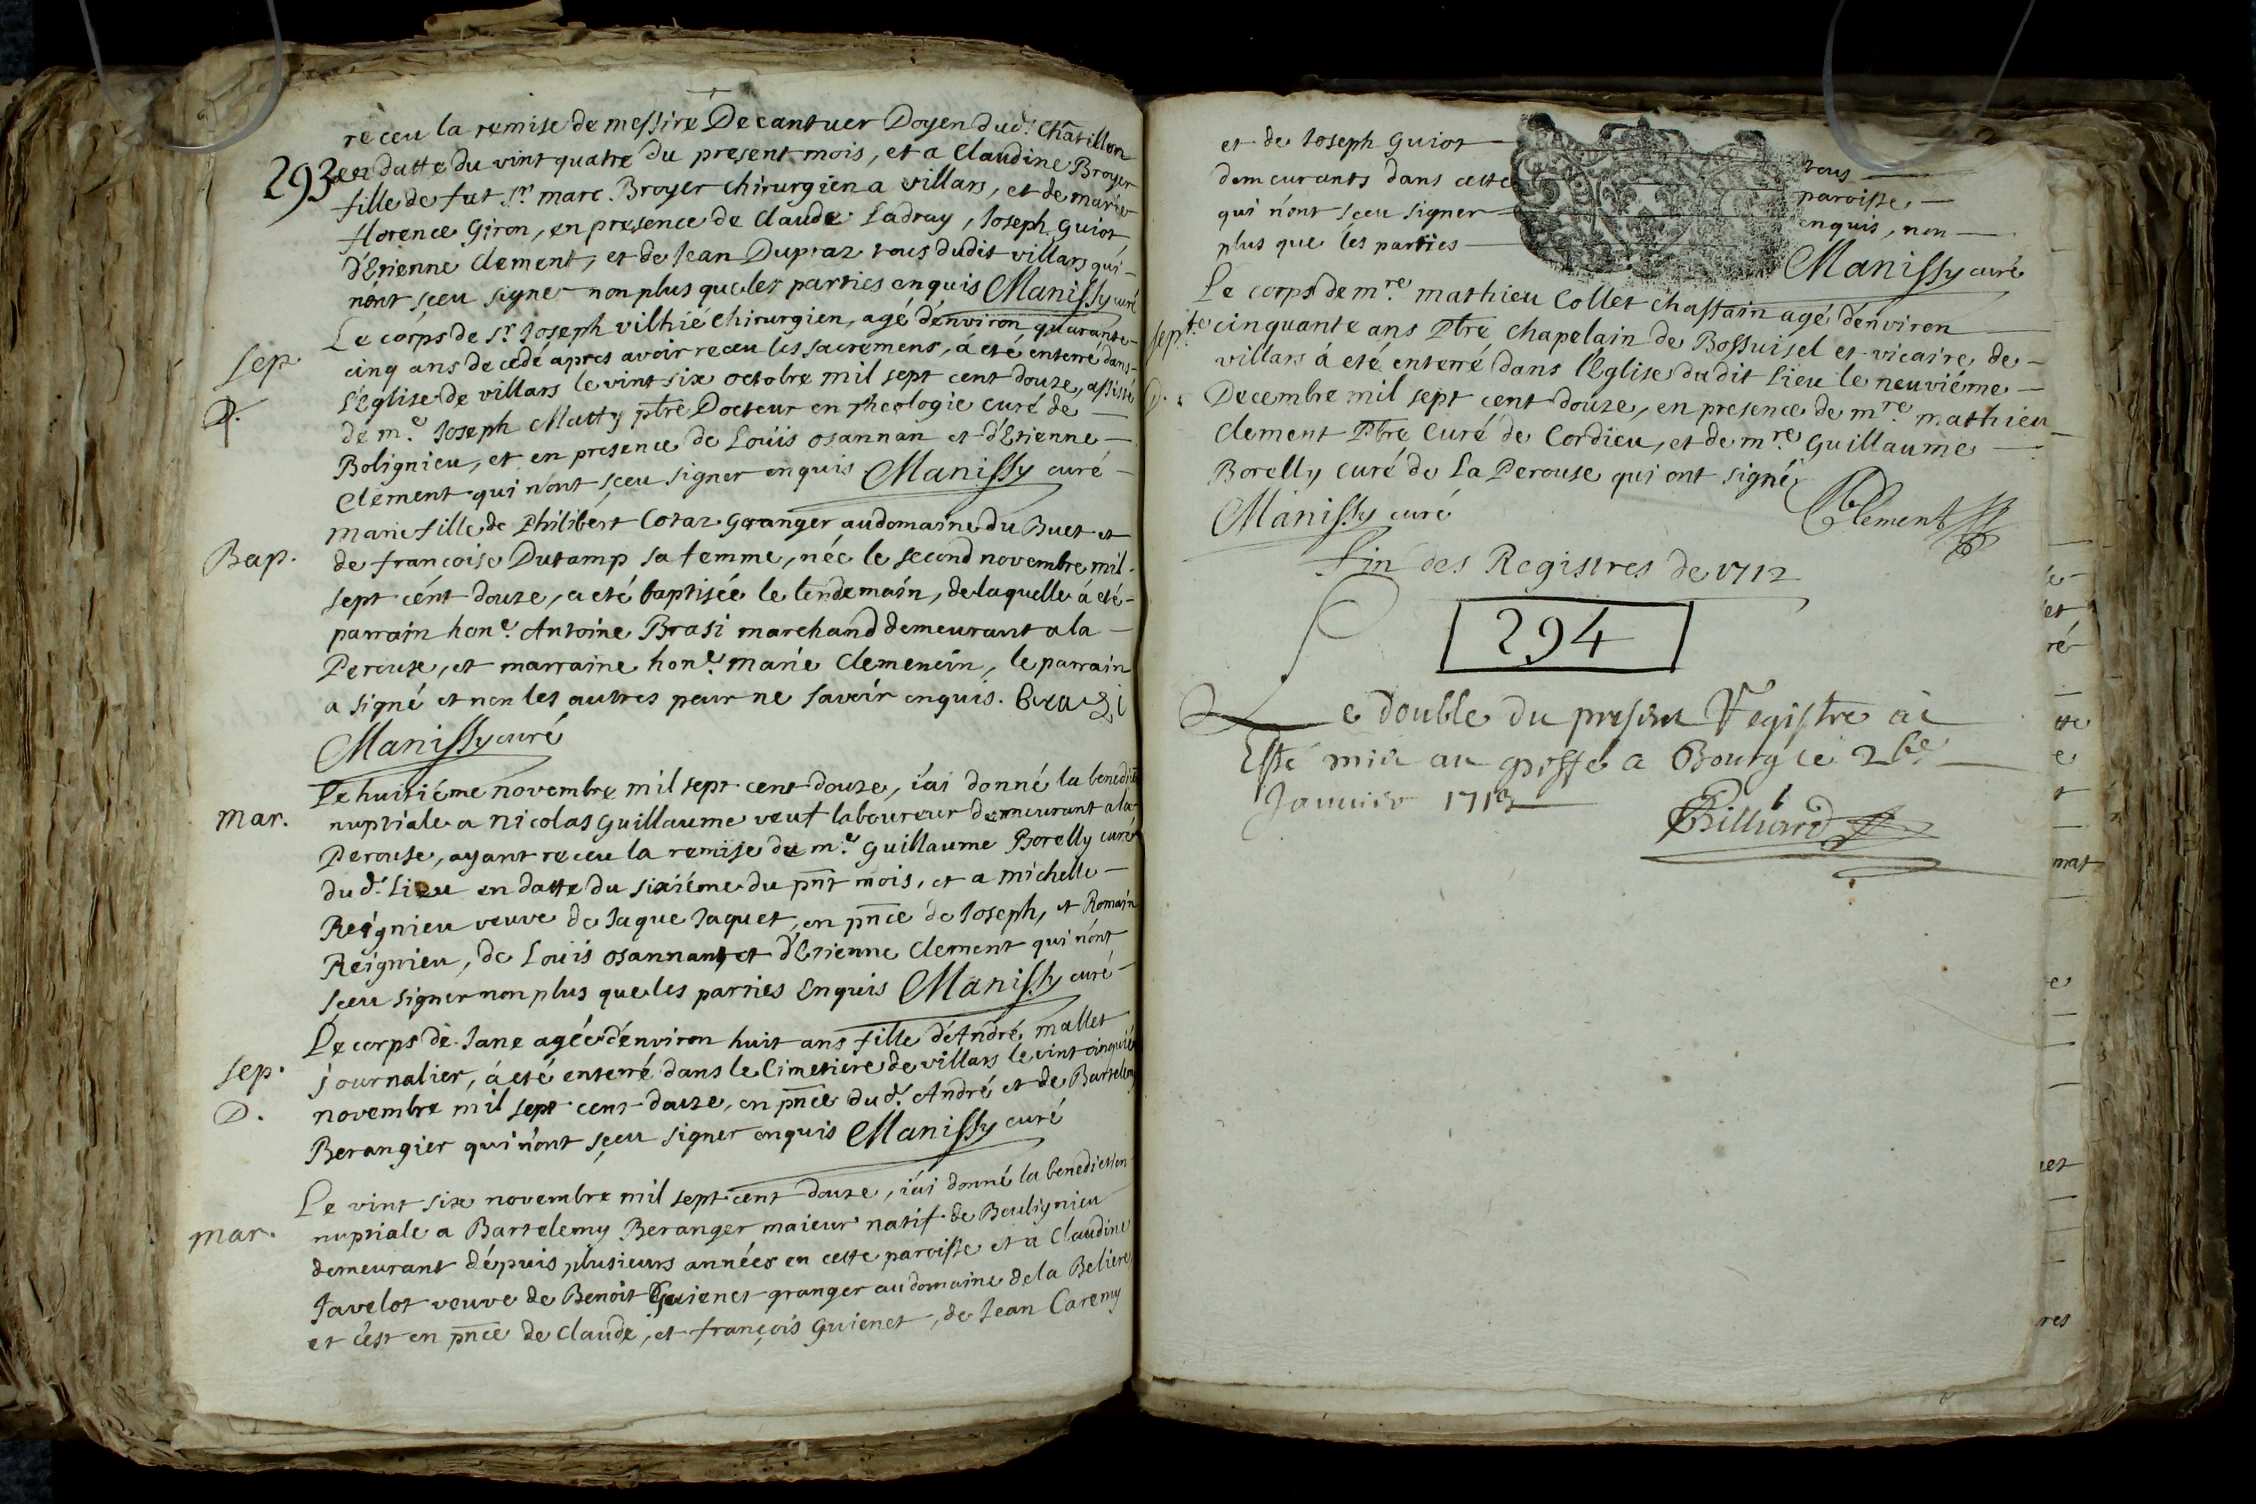 receu la remise de messire Decantuer Doyen dud.t Chatillon
293 en datte du vint quatre du present mois, et a Claudine Broyer
fille de fut Sr. marc. Broyer chirurgien a villars, et de marie
florence Giron, en presence de Claude Ladray, Ioseph Guiot,
d'Etienne Clement, et de Iean Dupraz tous dudit villars qui-
n'ont sçeu signer non plus que les parties enquis Manissy curé
Sep.
D.
Le corps de Sr. Ioseph vilhié chirurgien, agé d'environ quarante-
cinq ans decedé apres avoir receu les sacremens, á eté enterré dans-
l'Eglise de villars le vint six octobre mil sept cent douze, assisté
de m.e Ioseph Matty ptre Docteur en Theologie curé de —
Bolignieu, et en presence de Loüis osannan et d'Etienne —
Clement qui n'ont sçeu signer enquis Manissy curé —
Bap.
Marie fille de Philibert Cotaz Granger au domaine du Buet et
de françoise Dutamp sa femme, née le second novembre mil.
sept cént douze, a eté baptisée le lendemain, de laquelle á eté-
parrain hon.e Antoine Brasi marchand demeurant a la —
Perouse, et marraine hon.e marie Clemencin, le parrain
a signé et non les autres pour ne savoir enquis. Brazi
Manissy curé
Mar.
Le huitiéme novembre mil sept cent douze, i'ai donné la benedi
nuptiale a Nicolas Guillaume veuf laboureur demeurant a la
Perouse, ayant receu la remise de m.e Guillaume Borelly curé
du d.t Lieu en datte du sixiéme du pnt mois, et a michelle —
Reignieu veuve de Iaque Iaquet, en pnce de Ioseph, et Romain
Reignieu, de Loüis osannan, et d'Etienne Clement qui n'ont
sçeu signer non plus que les parties Enquis Manissy curé —
Sep.
D.
Le corps de Iane agée d'environ huit ans fille d'André mallet
journalier, á eté enterré dans le Cimetiere de villars le vint cinquié
novembre mil sept cent douze, en pnce dud.t André et de Bartelem
Berangier qui n'ont sçeu signer enquis Manissy curé
Mar.
Le vint six novembre mil sept cent douze, i'ai donné la benediction
nuptiale a Bartelemy Beranger maieur natif de Boulignieu
demeurant dépuis plusieurs années en cette paroisse et a Claudine
Iavelot veuve de Benoit Guienet granger au domaine de la Beliere
et c'est en pnce de Claude, et françois Guienet, de Iean Caremy
et de Ioseph Guiot — tous —
demeurants dans cette paroisse —
qui n'ont sçeu signer — enquis, non —
plus que les parties — Manissy curé
Sept.e
D.
Le corps de m.re mathieu Collet Chastain agé d'énviron
cinquante ans Ptre chapelain de Bossuisel et vicaire de —
villars á eté enterré dans l'Eglise dudit Lieu le neuviéme —
Decembre mil sept cent douze, en presence de m.re mathieu
Clement Ptre Curé de Cordieu, et de m.re Guillaume —
Borelly curé de La Perouse qui ont signé
Manissy curé Clement
Fin des Registres de 1712
294
Le double du present Registre a
Esté mis au greffe a Bourg le
Janvier 1713
Billiard